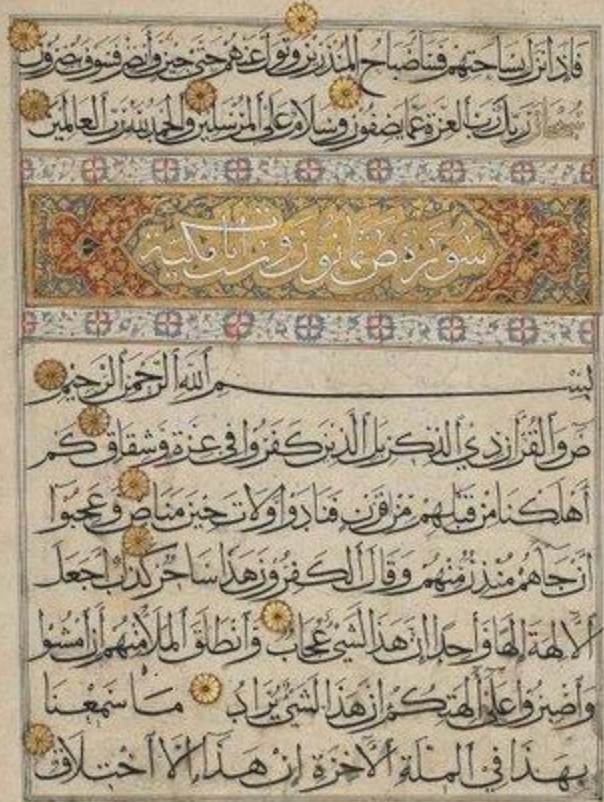 فإذا نزل بساحتهم فساء صباح المنذرين وتول عنهم حتى حين وأبصر فسوف يبصرون
سبحان ربك رب العزة عما يصفون وسلام على المرسلين والحمد لله رب العالمين
سورة ص ثمانون وثمان آيات مكية
بسم الله الرحمن الرحيم
ص والقرآن ذي الذكر بل الذين كفروا في عزة وشقاق كم
أهلكنا من قبلهم من قرن فنادوا ولات حين مناص وعجبوا
أن جاءهم منذر منهم وقال الكفرون هذا ساحر كذاب أجعل
الآلهة إلها واحدا إن هذا لشيء عجاب وانطلق الملأ منهم أن امشوا
واصبروا على آلهتكم إن هذا لشيء يراد ما سمعنا
بهذا في الملة الآخرة إن هذا إلا اختلاق